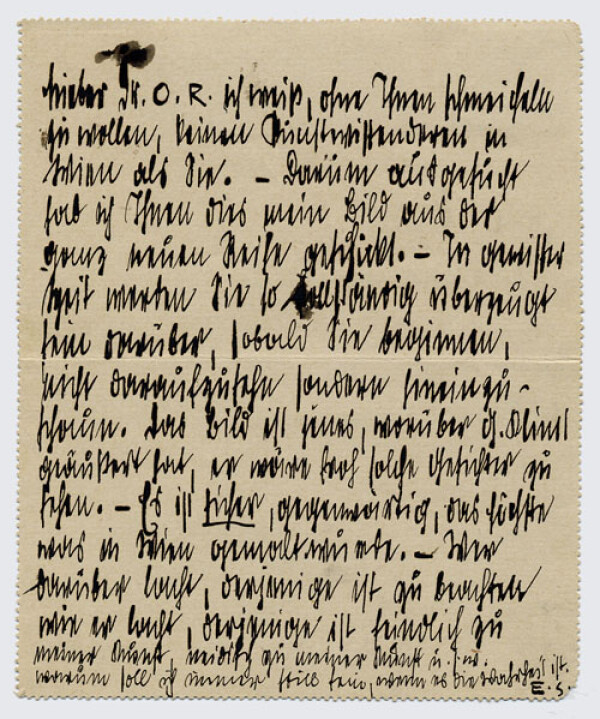 Lieber Dr. O. R. ich weiß, ohne Ihnen schmeicheln
zu wollen, keinen Kunstwissenderen in
Wien als Sie. – Darum ausgesucht
hab ich Ihnen dies mein Bild aus der
ganz neuen Reihe geschickt. – In gewisser
Zeit werden Sie so vollständig überzeugt
sein darüber, sobald Sie beginnen,
nicht daraufzusehn sondern hineinzu-
schaun. Das Bild ist jenes, worüber G. Klimt
geäußert hat, er wäre froh solche Gesichter zu
sehen. – Es ist sicher, gegenwärtig, das höchste
was in Wien gemalt wurde. – Wer
darüber lacht, derjenige ist zu beachten
wie er lacht, derjenige ist feindlich zu
meiner Kunst, neidisch zu meiner Kunst u. s. w.
warum soll ich immer still sein, wenn es die Wahrheit ist.
E. S.